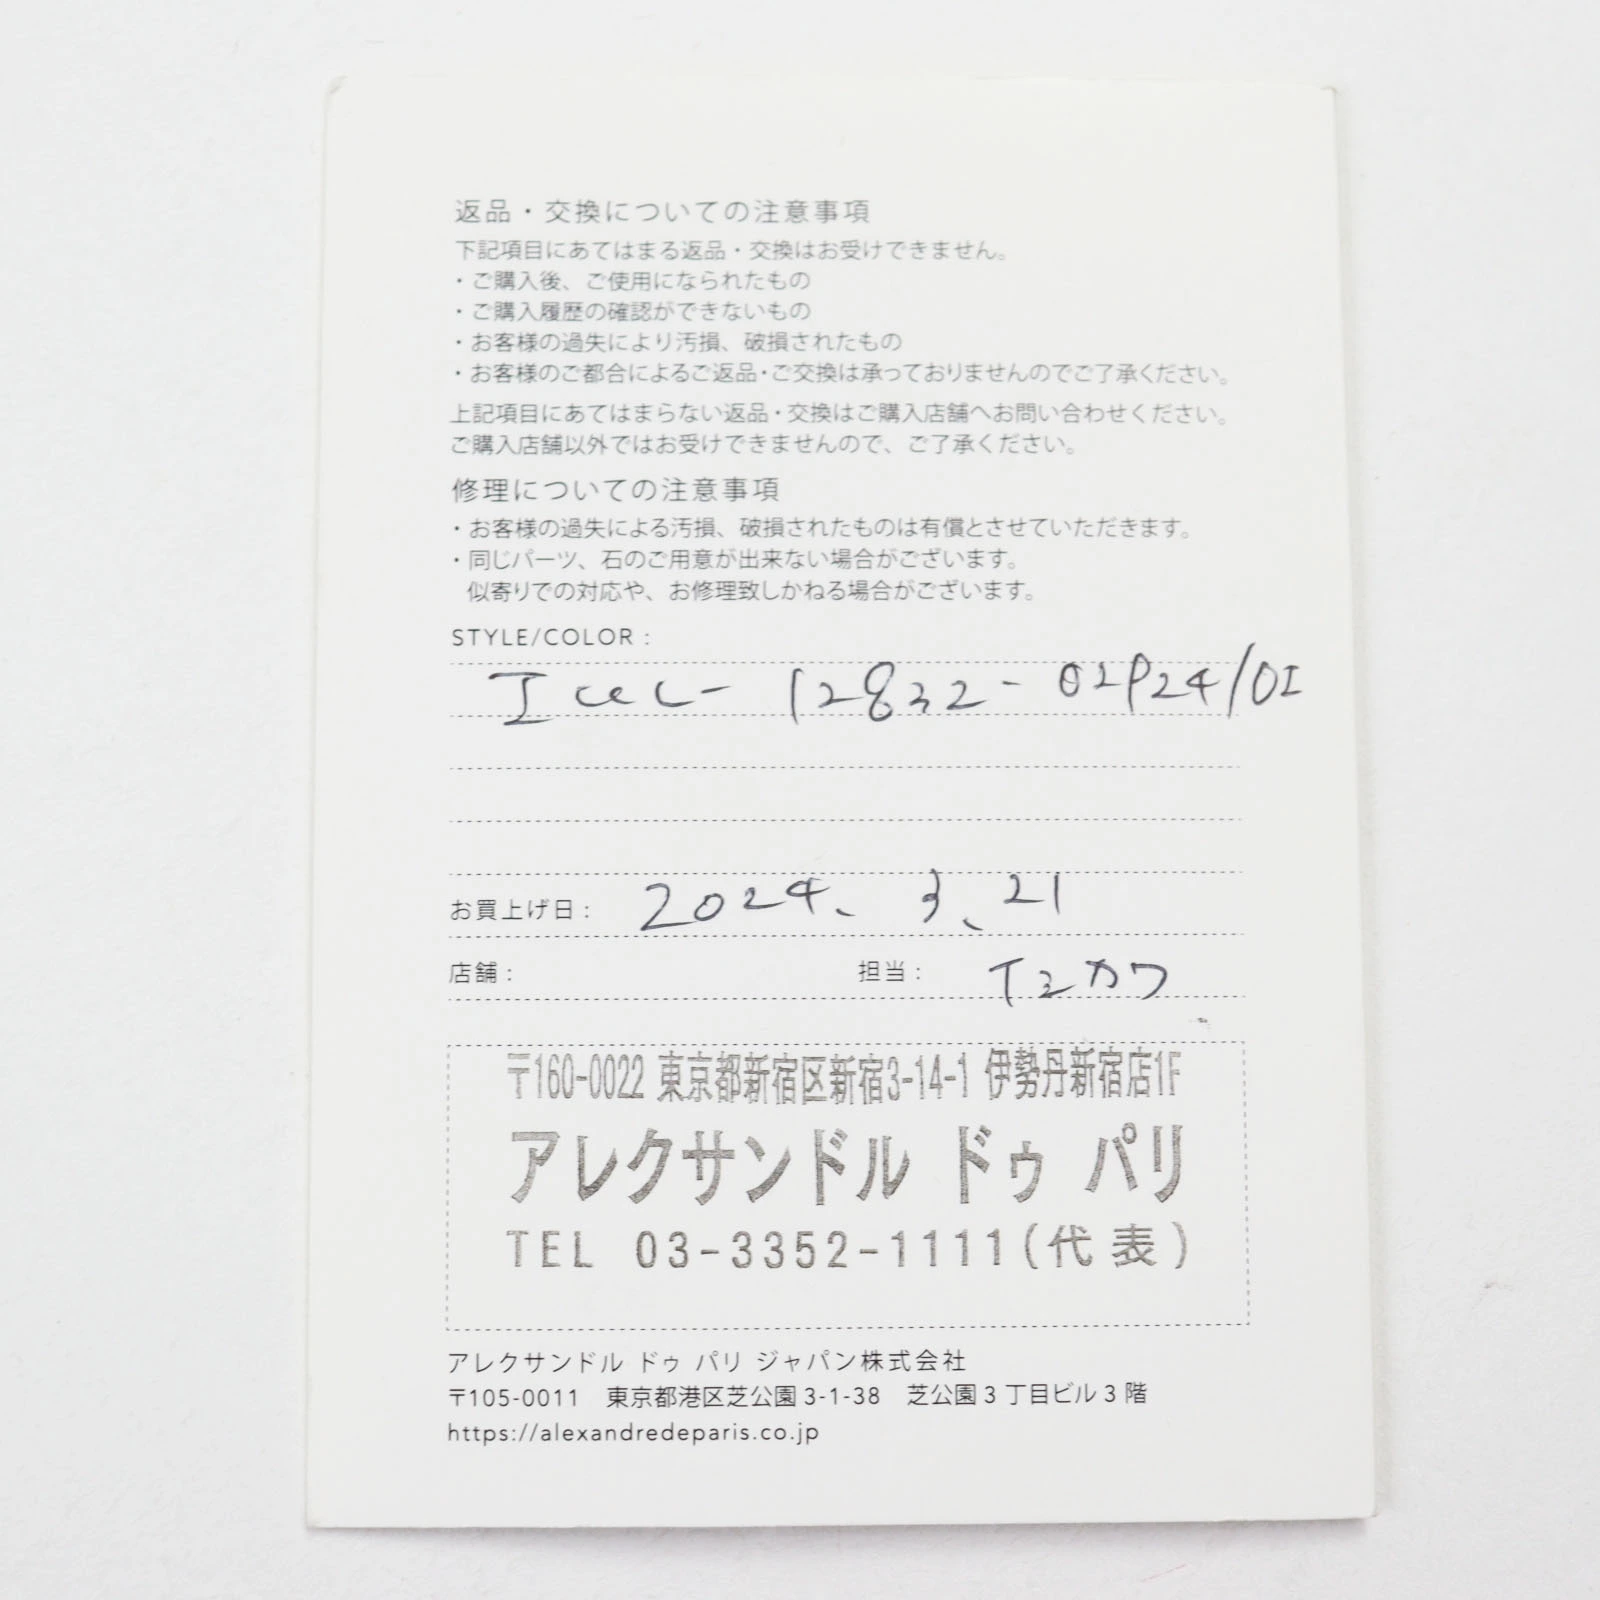 返品・交換についての注意事項
下記項目にあてはまる返品・交換はお受けできません。
・ご購入後、ご使用になられたもの
・ご購入履歴の確認ができないもの
・お客様の過失により汚損、破損されたもの
・お客様のご都合によるご返品・ご交換は承っておりませんのでご了承ください。
上記項目にあてはまらない返品・交換はご購入店舗へお問い合わせください。
ご購入店舗以外ではお受けできませんので、ご了承ください。
修理についての注意事項
・お客様の過失による汚損、破損されたものは有償とさせていただきます。
・同じパーツ、石のご用意が出来ない場合がございます。
似寄りでの対応や、お修理致しかねる場合がございます。
STYLE/COLOR :
12832-02P24/OI
お買上げ日 : 2024、3、21
店舗 : 担当 :
〒160-0022 東京都新宿区新宿3-14-1 伊勢丹新宿店1F
アレクサンドル ドゥ パリ
TEL 03-3352-1111(代表)
アレクサンドル ドゥ パリ ジャパン株式会社
〒105-0011 東京都港区芝公園 3-1-38 芝公園 3 丁目ビル 3 階
https://alexandredeparis.co.jp